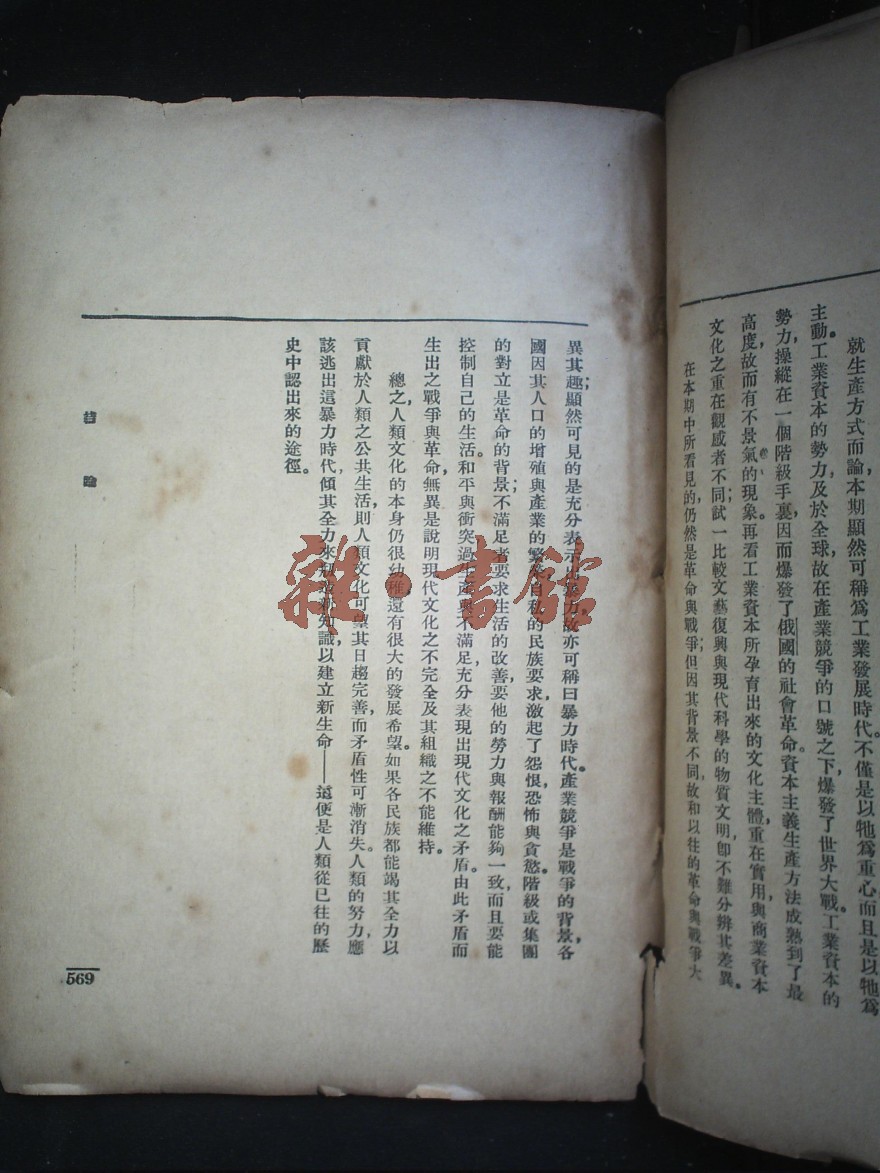 就生產方式而論本期顯然可稱爲工業發展時代。不僅是以牠爲重心而且是以牠爲
主動。工業資本的勢力及於全球,故在產業競爭的口號之下爆發了世界大戰。工業資本的
勢力,操縱在一個階級手裏,因而爆發了俄國的社會革命。資本主義生產方法成熟到了最
高度,故而有不景氣的現象。再看工業資本所孕育出來的文化主體,重在實用,與商業資本
文化之重在觀感者不同;試一比較文藝復興與現代科學的物質文明,卽不難分辨其差異。
在本期中所看見的仍然是革命與戰爭;但因其背景不同,故和以往的革命與戰爭大
異其趣;顯然可見的是充分表示出暴力,故亦可稱曰暴力時代。產業競爭是戰爭的背景,各
國因其人口的增殖與產業的繁榮自私的民族要求,激起了怨恨,恐怖與貪慾。階級或集團
的對立是革命的背景;不滿足者要求生活的改善,要他的勞力與報酬能夠一致,而且要能
控制自己的生活。和平與衝突,過生產與不滿足,充分表現出現代文化之矛盾。由此矛盾而
生出之戰爭與革命,無異是說明現代文化之不完全及其組織之不能維持。
總之,人類文化的本身仍很幼稚,還有很大的發展希望。如果各民族都能竭其全力以
貢獻於人類之公共生活,則人類文化可望其日趨完善,而矛盾性可漸消失。人類的努力,應
該逃出這暴力時代,傾其全力來 新知識以建立新生命——這便是人類從已往的歷
史中認出來的途徑。
結論
569
雜·書館